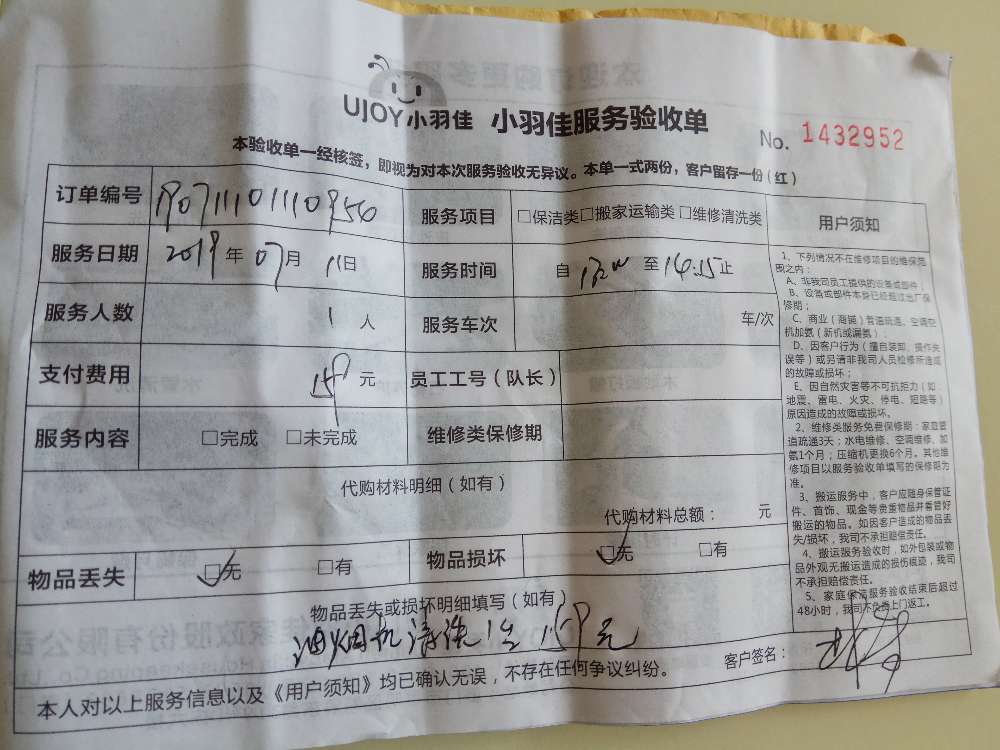 UJOY小羽佳 小羽佳服务验收单
No. 1432952
本验收单一经核签，即视为对本次服务验收无异议。本单一式两份，客户留存一份（红）
订单编号
服务项目 □保洁类□搬家运输类 □维修清洗类
服务日期 2019年07月11日
服务时间 自 至14:15止
服务人数 1人
服务车次 车/次
支付费用 元
员工工号（队长）
服务内容 □完成 □未完成
维修类保修期
代购材料明细（如有）
代购材料总额： 元
物品丢失 □无 □有
物品损坏 □无 □有
物品丢失或损坏明细填写（如有）
油烟机清洗1台 159元
客户签名：
本人对以上服务信息以及《用户须知》均已确认无误，不存在任何争议纠纷。
用户须知
1、下列情况不在维修项目的维保范
围之内：
A、非我司员工提供的设备或部件；
B、设备或部件本身已经超过出厂保
修期；
C、商业（商铺）管道疏通、空调空
机加氨（新机或漏氨）
D、因客户行为（擅自装卸、操作失
误等）或另请非我司人员检修所造成
的故障或损坏；
E、因自然灾害等不可抗拒力（如：
地震、雷电、火灾、停电、短路等）
原因造成的故障或损坏。
2、维修类服务免费保修期：家庭管
道疏通3天；水电维修、空调维修、加
氨1个月；压缩机更换6个月。其他维
修项目以服务验收单填写的保修期为
准。
3、搬运服务中，客户应随身保管证
件、首饰、现金等贵重物品并看管好
搬运的物品。如因客户造成的物品丢
失/损坏，我司不承担赔偿责任。
4、搬运服务验收时，如外包装或物
品外观无搬运造成的损伤痕迹，我司
不承担赔偿责任。
5、家庭保洁服务验收结束后超过
48小时，我司不负责上门返工。